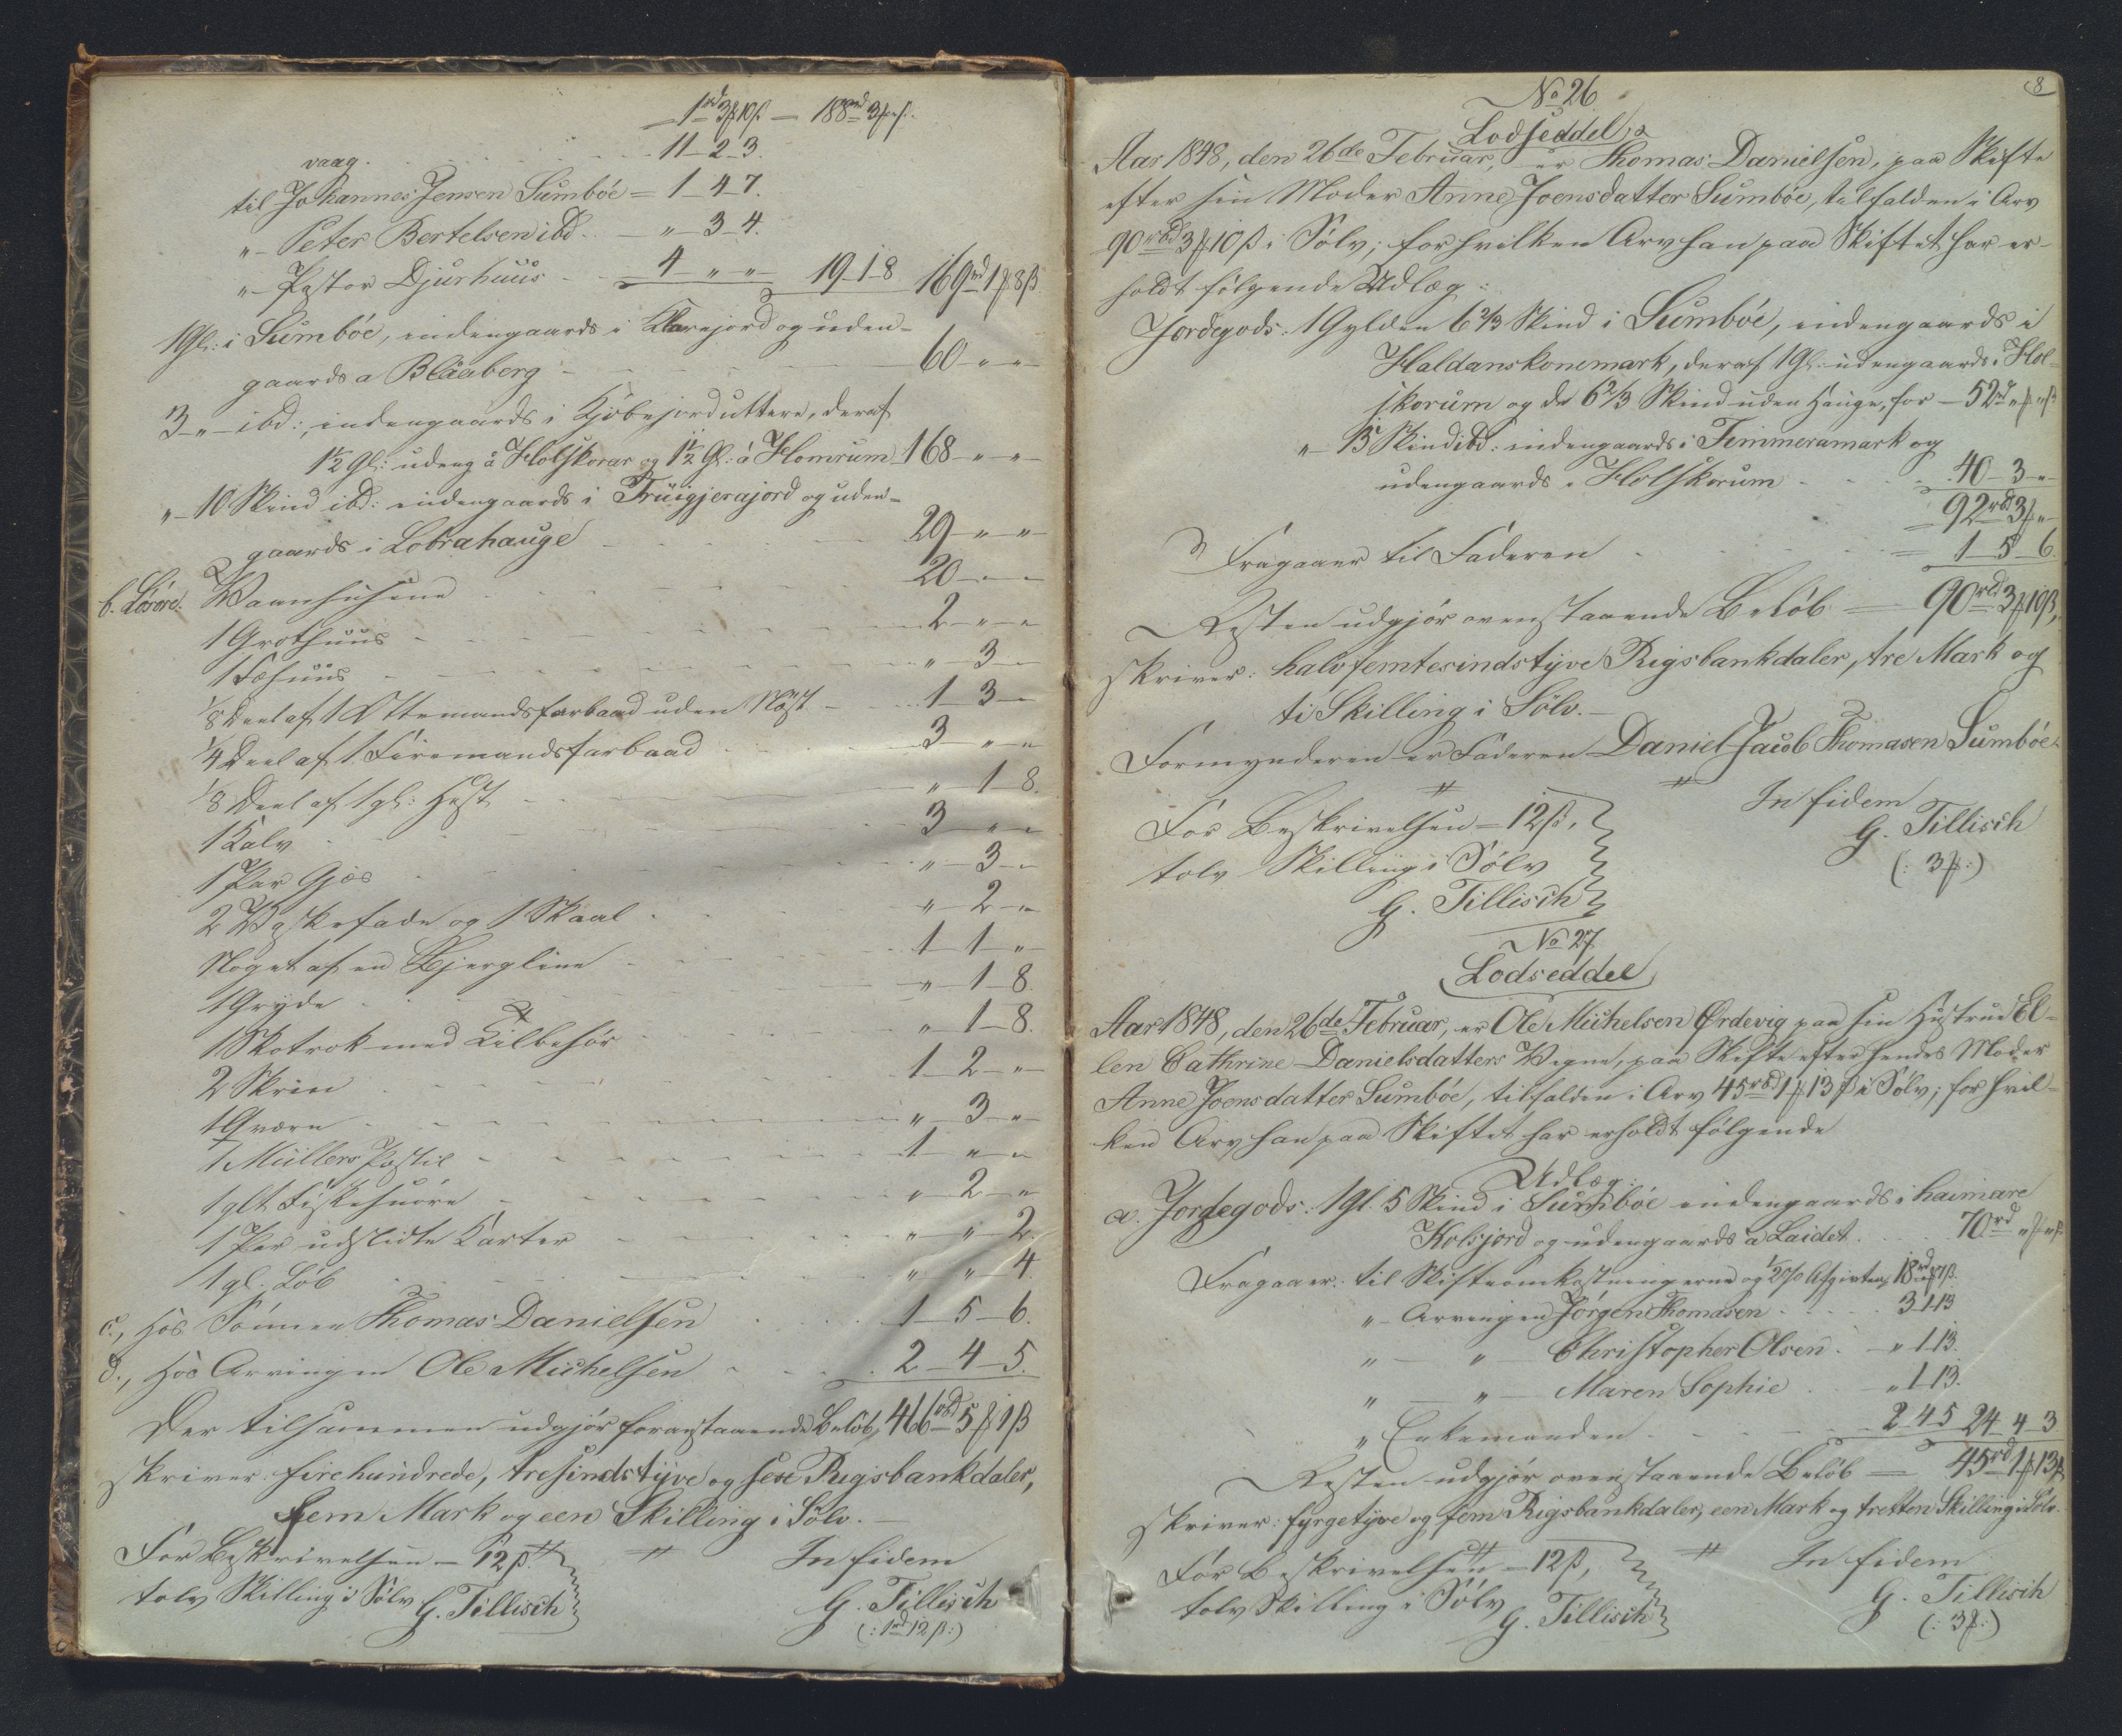 1rd 3ƒ 10ß — 188rd 3ƒ „ß.
vaag. 11-2-3.
til Johannes Jensen Sumböe = 1-4-7.
„- Peter Bertelsen ibd. - „-3-4.
„- Pastor Djurhuus - 4-„-„- 19-1-8 169rd 1ƒ 8ß
1 Gl: i Sumböe, indengaards i Klarejord og uden-
gaards a Blåaberg - 60-„-„-
3-„- ibd:, indengaards i Kjöbejord uttere, deraf
1½ Gl: udeng å Holskorar og 1½ Gl: å Homrum 168-„-„-
„- 10 Skind ibd: indengaards i Trüigjerajord og uden-
gaards i Lobrahauge 29-„-„-
b. Lösöre. Vaanhusene 20-„-„-
1 Grothuus 2-„-„-
1 Fæhuus „-3-„-
1/8 Deel af 1 Ottemandsfarbaad uden Nöst 1-3-„-
1/4 Deel af 1 Firemandsfarbaad 3-„-„-
1/8 Deel af 1 gl: Hest „-1-8.
1 Kalv 3-„-„-
1 Par Gjæs „-3-„-
2 Vaskefade og 1 Skaal „-2-„-
Noget af en Bjergline 1-1-„-
1 Gryde „-1-8.
1 Skotrok med Tilbehör „-1-8.
2 Skrin 1-2-„-
1 Qværn „-3-„-
1 Müllers Postil 1-„-„-
1 glt Fiskesnöre „-2-„-
1 Par udslidte Karter „-„-2.
1 gl. Löb „-„-4.
c., hos Sönnen Thomas Danielsen 1-5-6.
d., hos Arvingen Ole Michelsen 2-4-5.
Der tilsammen udgjör foranstaaende Belöb, 466rbd 5ƒ 1ß
skriver: firehundrede, tresindstyve og sex Rigsbankdaler,
fem Mark og een Skilling i Sölv.-
For Beskrivelsen - 12ß In fidem
tolv Skilling i Sölv G. Tillisch G. Tillisch
(: 1rd 12ß :)
8
No 26
Lodseddel,
Aar 1848, den 26de Februar, er Thomas Danielsen, paa Skifte
efter sin Moder Anne Joensdatter Sumböe, tilfalden i Arv
90rbd 3ƒ 10ß i Sölv; for hvilken Arv han paa Skiftet har er-
holdt fölgende Udlæg:
Jordegods: 1 Gylden 6 2/3 Skind i Sumböe, indengaards i
Haldanskonemark, deraf 1 Gl: udengaards i Hol-
skorum og de 6 2/3 Skind uden Hauge, for - 52rd „ƒ „ß
„- 15 Skind ibd: indengaards i Timmeramark og
udengaards i Holskorum 40-3-„-
92rbd 3ƒ „-
Fragaaer til Faderen 1-5-6.
Resten udgjör ovenstaaende Belöb — 90rbd 3ƒ 10ß,
skriver: halvfemtesindstyve Rigsbankdaler, tre Mark og
ti Skilling i Sölv.-
Formynderen er Faderen Daniel Jacob Thomasen Sumböe.
For Beskrivelsen - 12ß, In fidem
tolv Skilling i Sölv G. Tillisch
G. Tillisch (: 3ƒ :)
No 27
Lodseddel
Aar 1848, den 26de Februar, er Ole Michelsen Ørdevig paa sin Hustrue El-
len Cathrine Danielsdatters Vegne, paa Skifte efter hendes Moder
Anne Joensdatter Sumböe, tilfalden i Arv 45rbd 1ƒ 13ß i Sölv; for hvil-
ken Arv han paa Skiftet har erholdt fölgende
Udlæg:
a. Jordegods: 1 gl. 5 Skind i Sumböe indengaards i haimare
Kolsjord og udengaards a Laidet. 70rd „ƒ „ß
Fragaaer: til Skifteomkostningerne og ½ % Afgivten 18rd „ƒ 1ß
„- Arvingen Jörgen Thomasen 3-1-13
„ - „ - Christopher Olsen. - „ 1-13.
„ - „ - Maren Sophie „ 1-13.
„ Enkemanden 2-4-5 24-4-3
Resten udgjör ovenstaaende Belöb — 45rd 1ƒ 13ß
skriver: fyrgetyve og fem Rigsbankdaler, een Mark og tretten Skilling i Sölv.
For Beskrivelsen - 12ß, In fidem
tolv Skilling i Sölv G. Tillisch
G. Tillisch (: 3ƒ :)